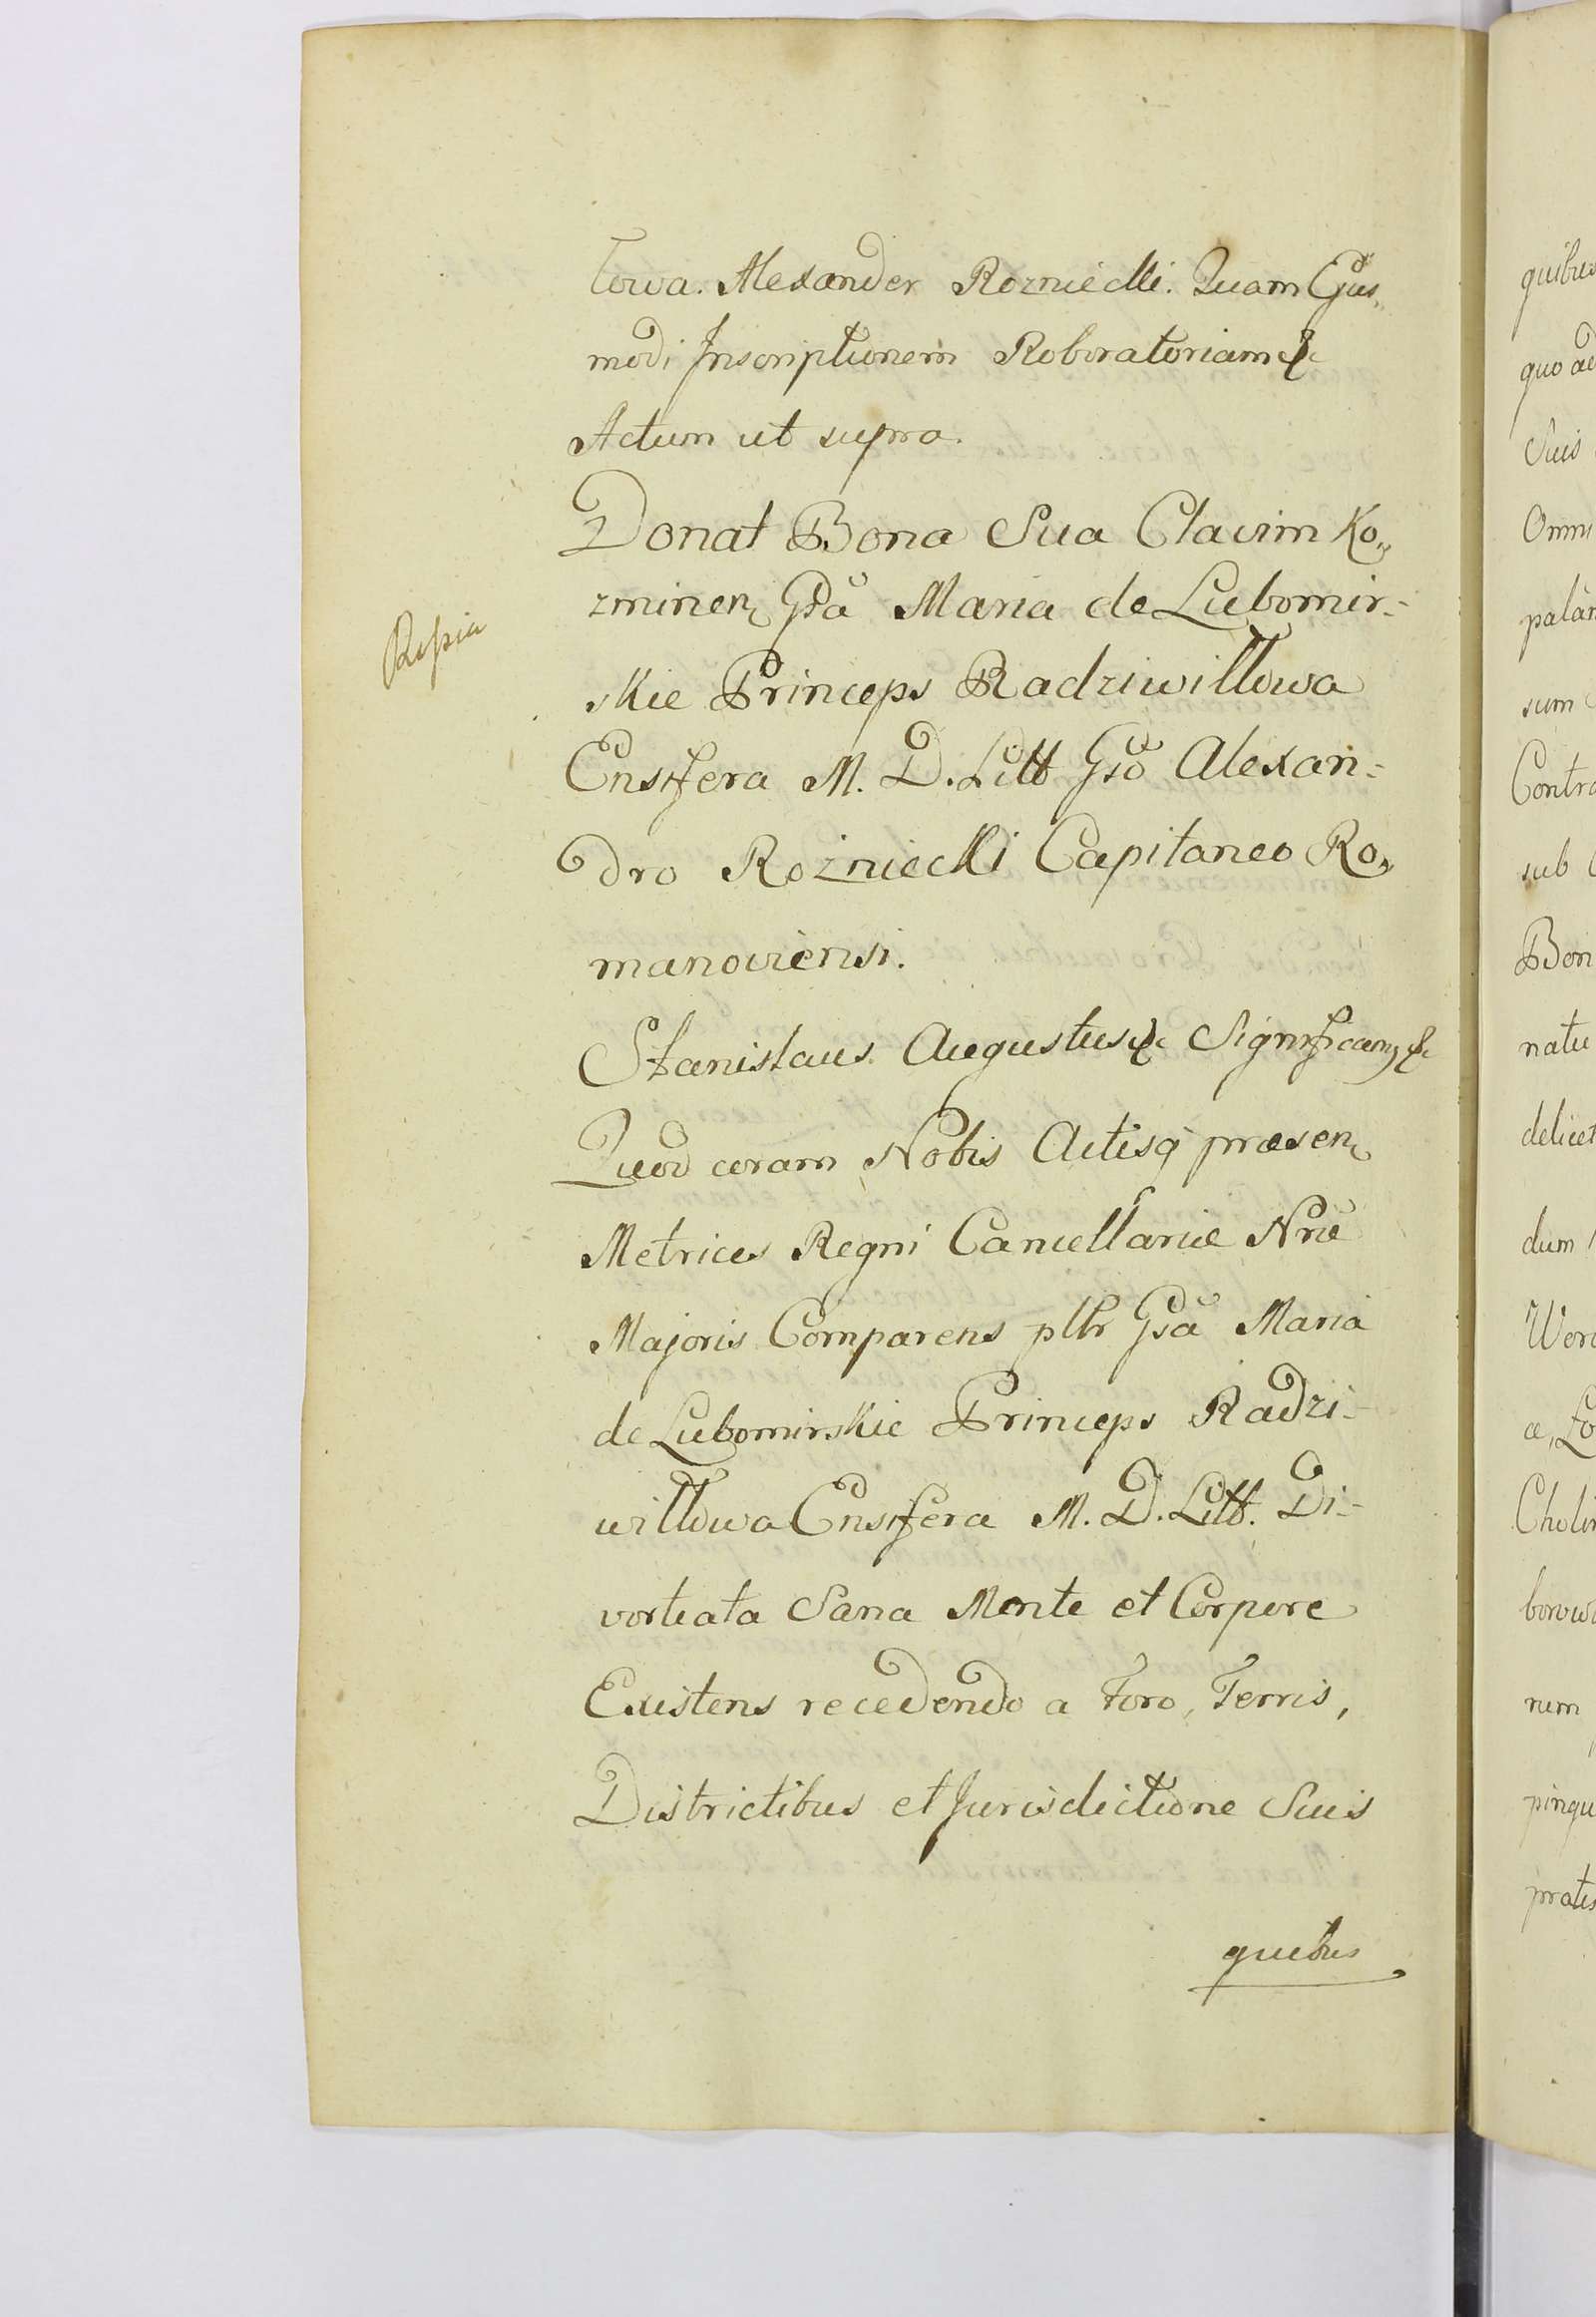 towa. Alexander Rozniecki. Quam Ejus„
modi Inscriptionem Roboratoriam &c
Actum ut supra.
Donat Bona Sua Clavim Ko„
zminen Gsã Maria de Lubomir-
skie Princeps Radziwiłłowa
Ensifera M. D. Litt Gsõ Alexan=
dro Rożniecki Capitaneo Ro„
manoviensi.
Stanislaus Augustus &c Significam &c
Quod coram Nobis Actisq præsen
Metrices Regni Cancellariæ Nrẽ
Majoris Comparens pllr Gsã Maria
de Lubomirskie Princeps Radzi-
wiłłowa Ensifera M. D. Litt. Di-
vorteata Sana Mente et Corpore
Existens recedendo a Foro, Terris,
Districtibus et Jurisdictione Suis
quibus
quibus
quo ad
Suis
Omni
palàm
sum
Contra
sub
Bon
natu
delicet
dum
a, Lo
num
pratis